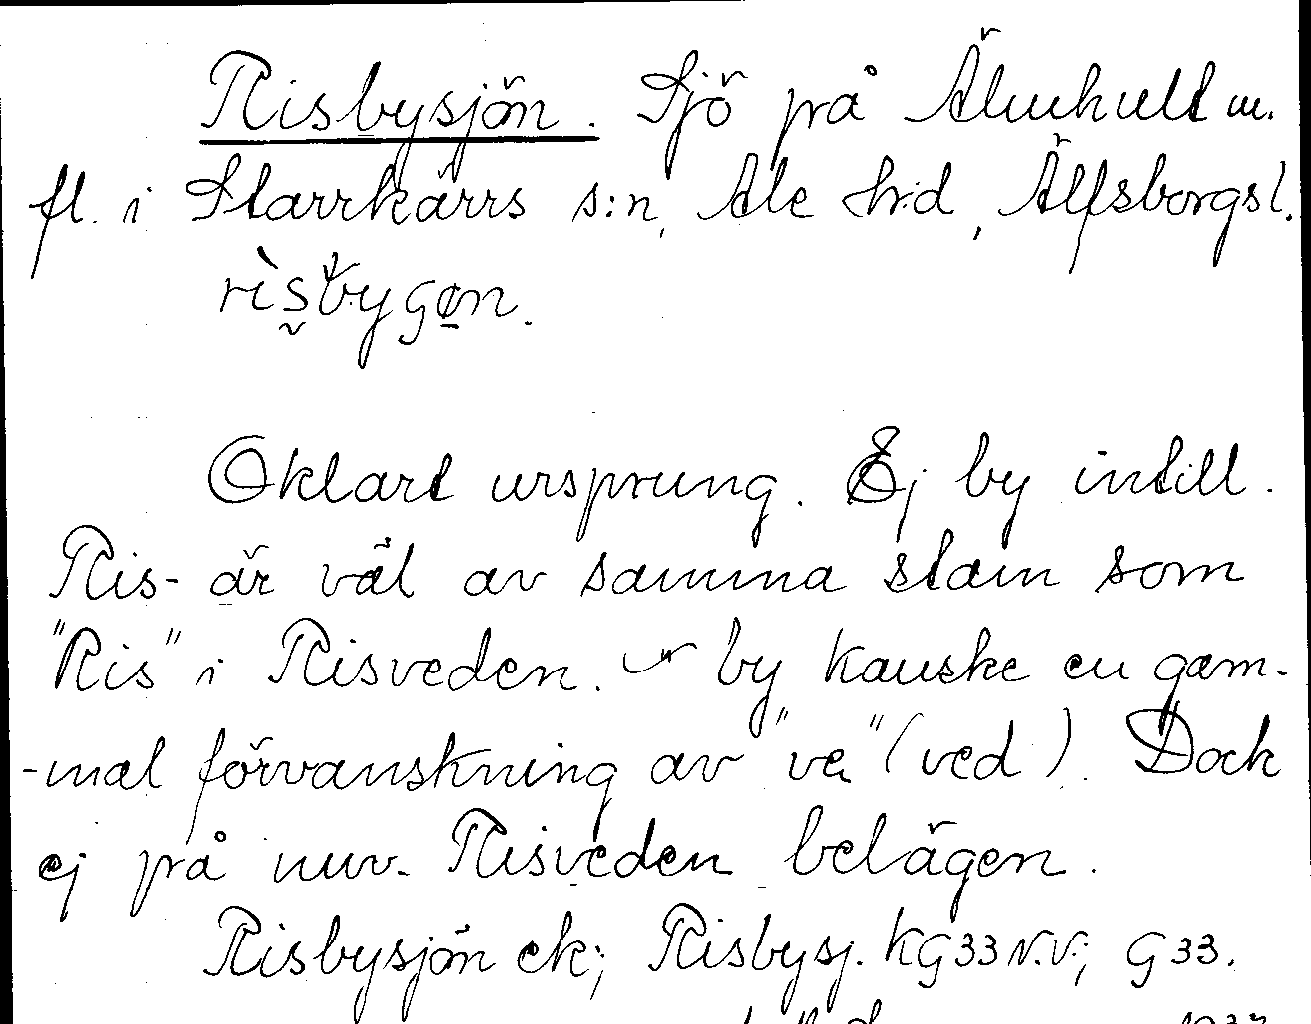 Risbysjön. Sjö på Älmhult m.
fl. i Starrkärrs s:n, Ale h:d, Älfsborgs l.
Oklart ursprung. Ej by intill.
Ris- är väl av samma stam som
"Ris" i Risveden. by kanske en gam-
-mal förvanskning av "ve" (ved). Dock
ej på nuv. Risveden belägen.
Risbysjön ek; Risbysj. KG33 N.V; G33.